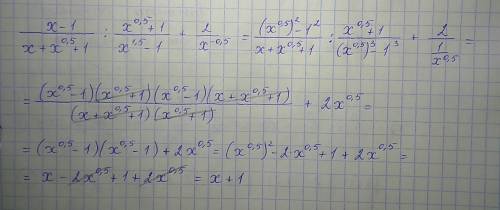 (x-1)/(x+x^0,5+1) : (x^0,5+1)/(x^1,5-1) + 2/x^-0,5 = ((x^0,5)^2-1^2)/(x+x^0,5+1) : (x^0,5+1)/((x^0,5)^3-1^3) + 2/(1/x^0,5) =
= ((x^0,5-1)(x^0,5+1)(x^0,5-1)(x+x^0,5+1))/((x+x^0,5+1)(x^0,5+1)) + 2x^0,5 =
= (x^0,5-1)(x^0,5-1)+2x^0,5 = (x^0,5)^2-2·x^0,5+1+2x^0,5 =
= x-2x^0,5+1+2x^0,5 = x+1